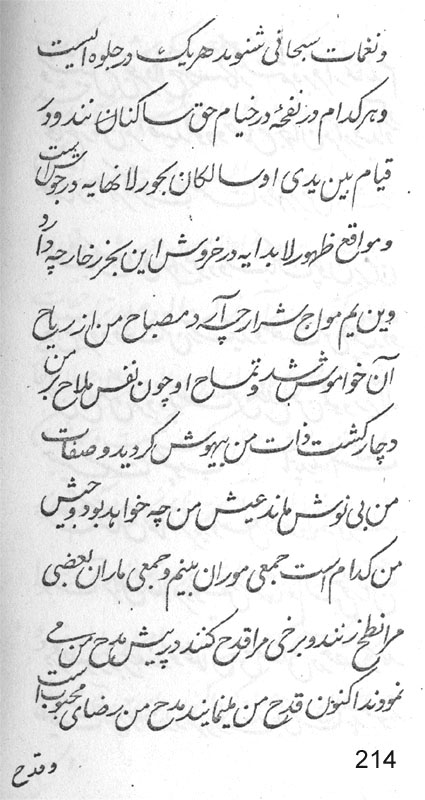 ونغمات سبحانی شنوید هریک در جلوه است
وهر کدام در نفحهٔ در خیام حق ساکنان نندودر
قیام بین یدی او سالکان بحور لانهایه در جوش است
و مواقع ظهور لابدایه در خروش این بخر زخارچه دارد
وین یم مواج شرارچه آرد مصباح من از ریاح
آن خواموش شد و تمساح او چون نفس ملاح بر من
دچار گشت ذات من بیهوش گردید و صفات
من بی نوش ماند عیش من چه خواهد بود وجیش
من کدام است جمعی موران بینم و جمعی ماران بعضی
مرا نطح زنند و برخی مرا قدح کنند در پیش مدح من می
نمودند اکنون قدح من مینمایند مدح من رضای محبوب است
وقدح
214